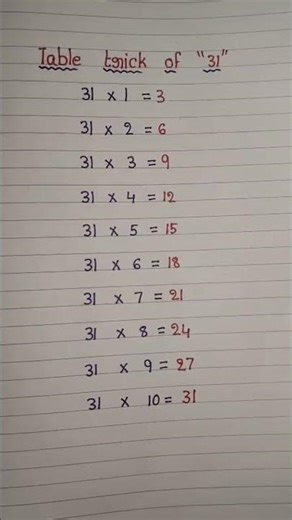 Table trick of "31"
31 x 1 = 3
31 x 2 = 6
31 x 3 = 9
31 x 4 = 12
31 x 5 = 15
31 x 6 = 18
31 x 7 = 21
31 x 8 = 24
31 x 9 = 27
31 x 10 = 31